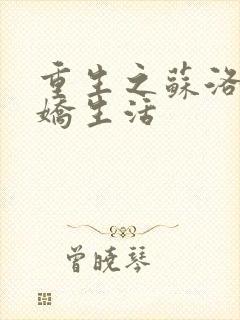 重生之蘇洛
嬌生活
曾曉琴